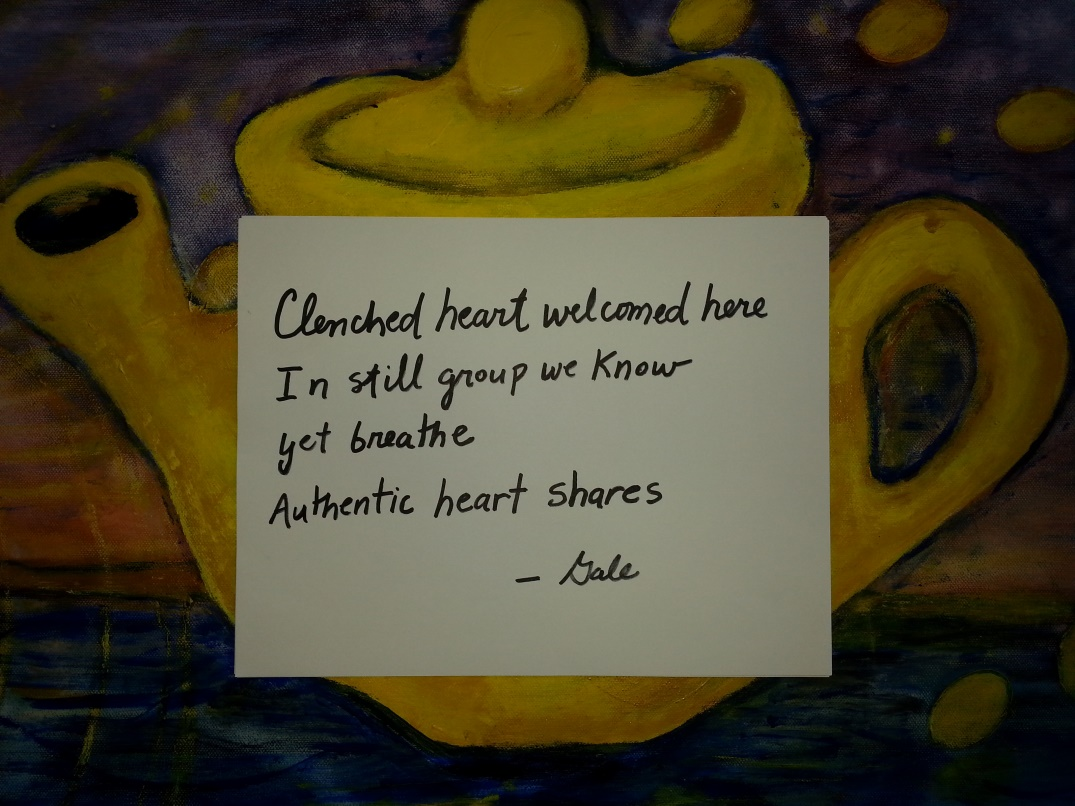 Clenched heart welcomed here
In still group we know
yet breathe
Authentic heart shares
– Gale